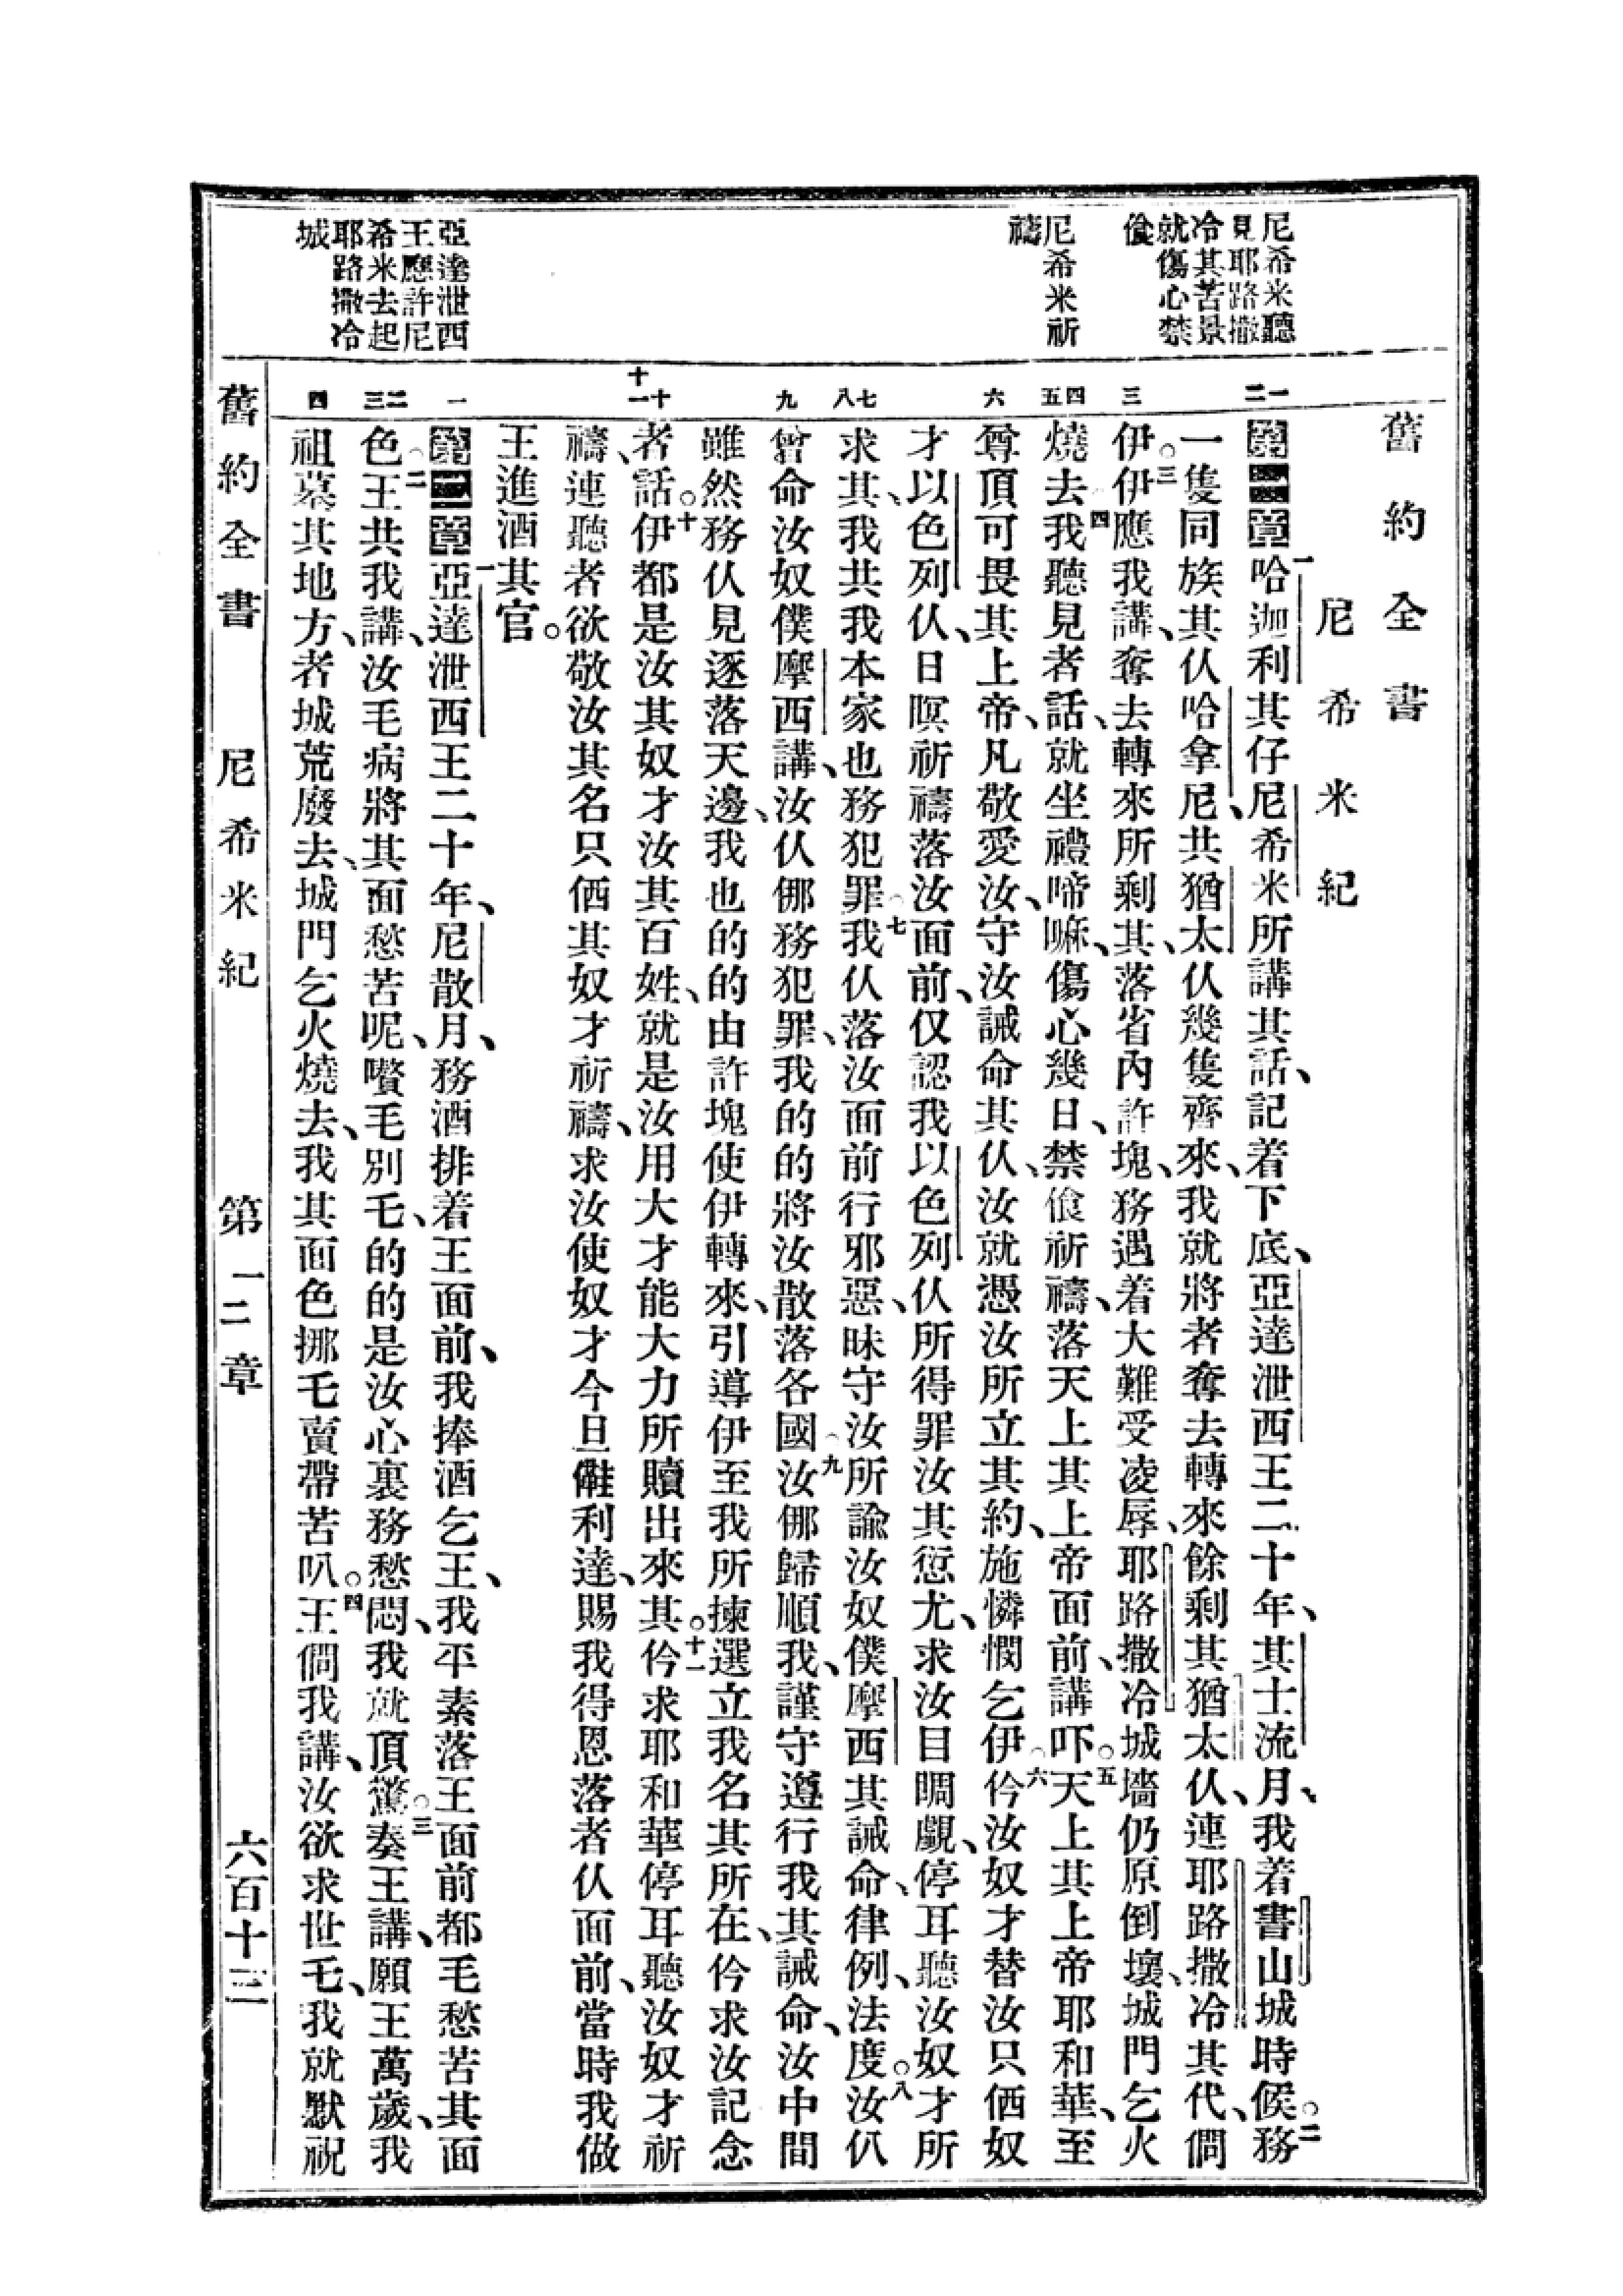 舊約全書
尼希米紀
尼希米聽
見耶路撒
冷其苦景
就傷心禁
飧
尼希米祈
禱
亞達泄西
王應許尼
希米去起
耶路撒冷
城
一
二
三
四
五
六
七
八
九
十
十一
一
二
三
四
第一章一哈迦利其仔尼希米所講其話、記着下底、亞達泄西王二十年、其士流月、我着書山城時候。二務
一隻同族其仈哈拿尼、共猶太仈幾隻齊來、我就將者奪去轉來餘剩其猶太仈、連耶路撒冷其代、僩
伊。三伊應我講、奪去轉來所剩其、落省內許塊、務遇着大難受凌辱、耶路撒冷城墻仍原倒壞、城門乞火
燒去。四我聽見者話、就坐禮啼嘛、傷心幾日、禁飧祈禱、落天上其上帝面前、講吓。五天上其上帝耶和華、至
尊頂可畏其上帝、凡敬愛汝、守汝誡命其仈、汝就憑汝所立其約、施憐憫乞伊。六仱汝奴才替汝只伵奴
才以色列仈、日暝祈禱落汝面前、仅認我以色列仈所得罪汝其愆尤、求汝目睭覷、停耳聽汝奴才所
求其、我共我本家也務犯罪。七我仈落汝面前行邪惡、昧守汝所諭汝奴僕摩西其誡命、律例、法度。八汝仈
曾命汝奴僕摩西講、汝仈倻務犯罪、我的的將汝散落各國。九汝倻歸順我、謹守遵行我其誡命、汝中間
雖然務仈見逐落天邊、我也的的由許塊使伊轉來、引導伊至我所揀選立我名其所在、仱求汝記念
者話。十伊都是汝其奴才汝其百姓、就是汝用大才能大力所贖出來其。十一仱求耶和華停耳聽汝奴才祈
禱、連聽者欲敬汝其名只伵其奴才祈禱、求汝使奴才今旦𠆧利達、賜我得恩落者仈面前、當時我做
王進酒其官。
第二章一亞達泄西王二十年、尼散月、務酒排着王面前、我捧酒乞王、我平素落王面前都毛愁苦其面
色。二王共我講、汝毛病將其面愁苦呢、嚽毛別乇、的的是汝心裏務愁悶、我就頂驚。三奏王講、願王萬歲、我
祖墓其地方、者城荒廢去、城門乞火燒去、我其面色挪乇賣帶苦叭。四王僩我講、汝欲求世乇、我就默祝
舊約全書
尼希米紀
第一二章
六百十三